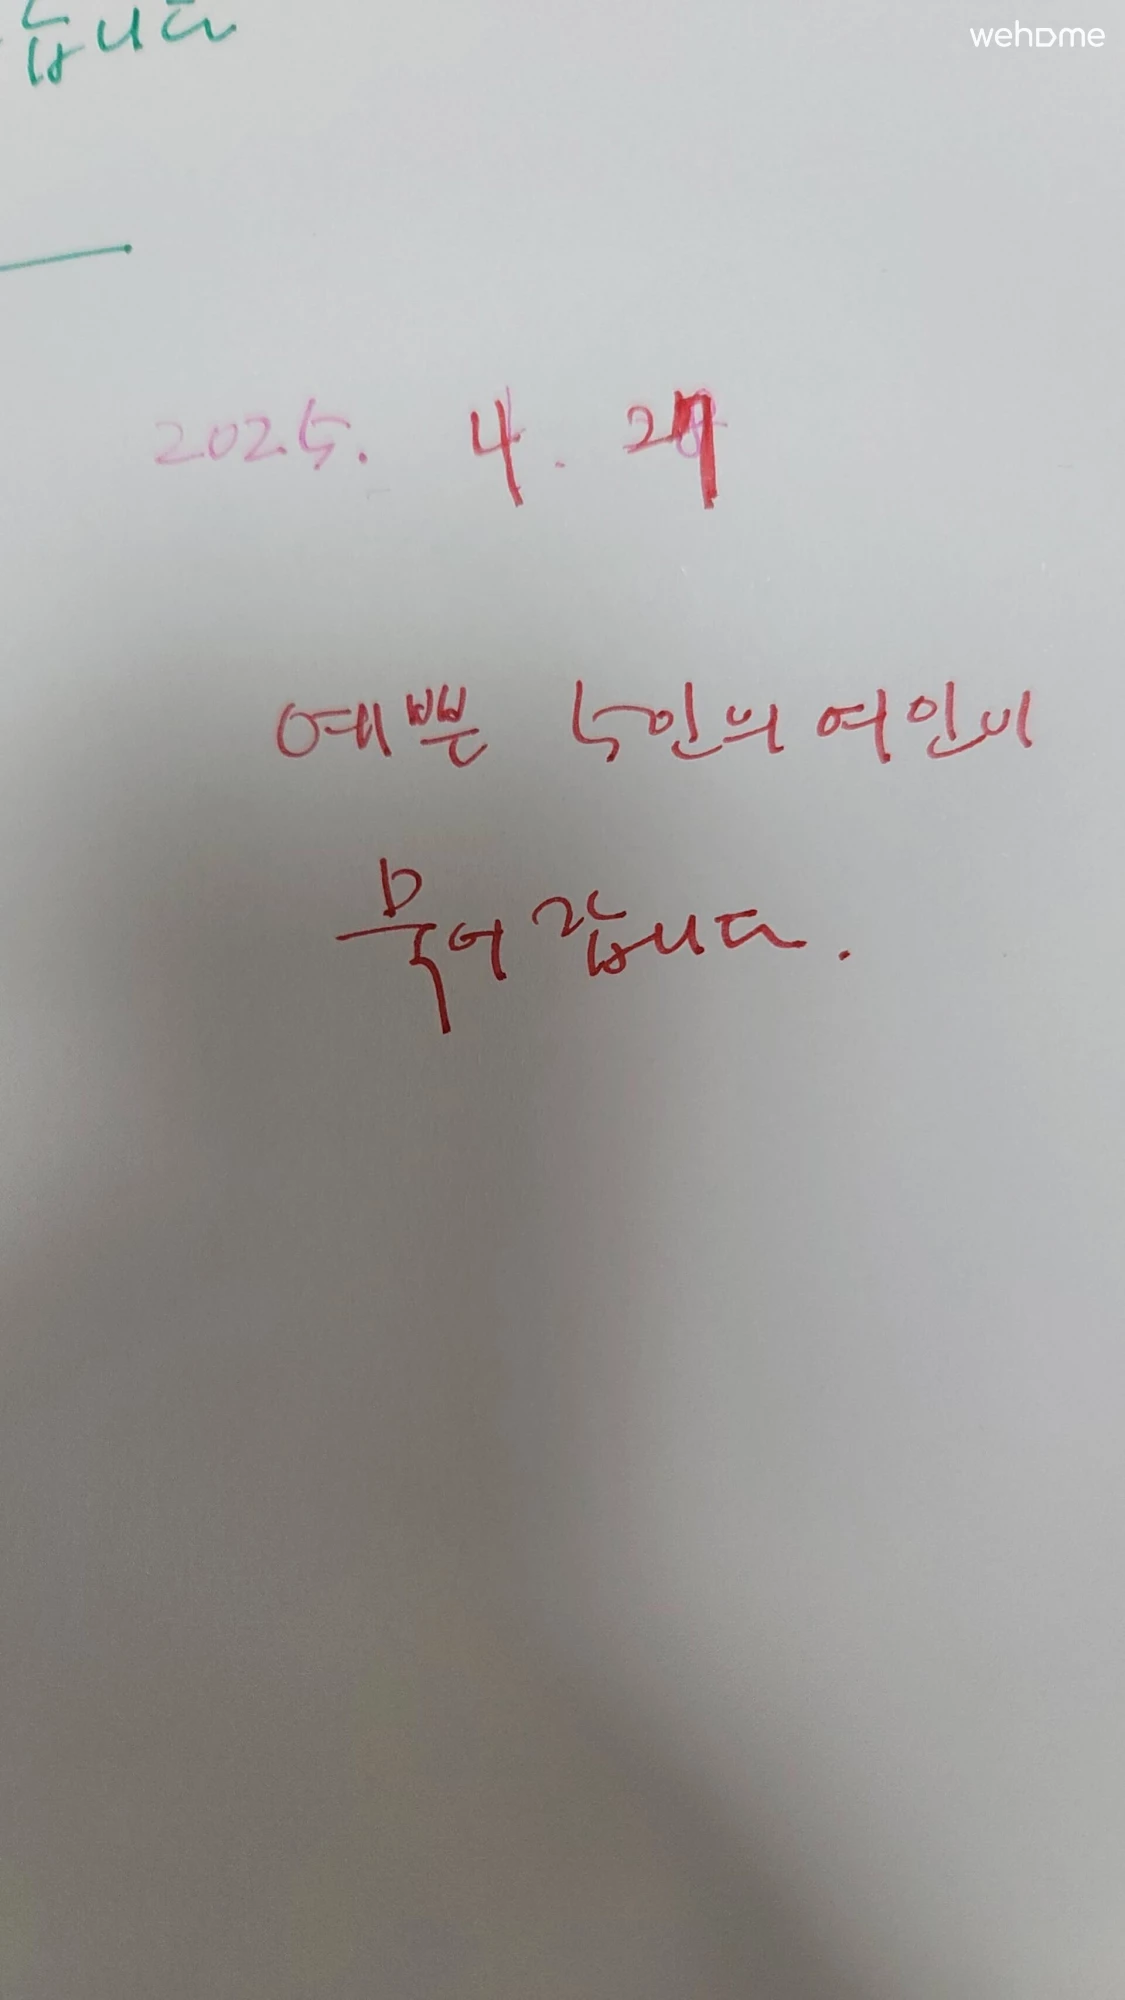 wehome
습니다
2025. 4. 27
예쁜 5인의 여인이
묵어 갑니다.